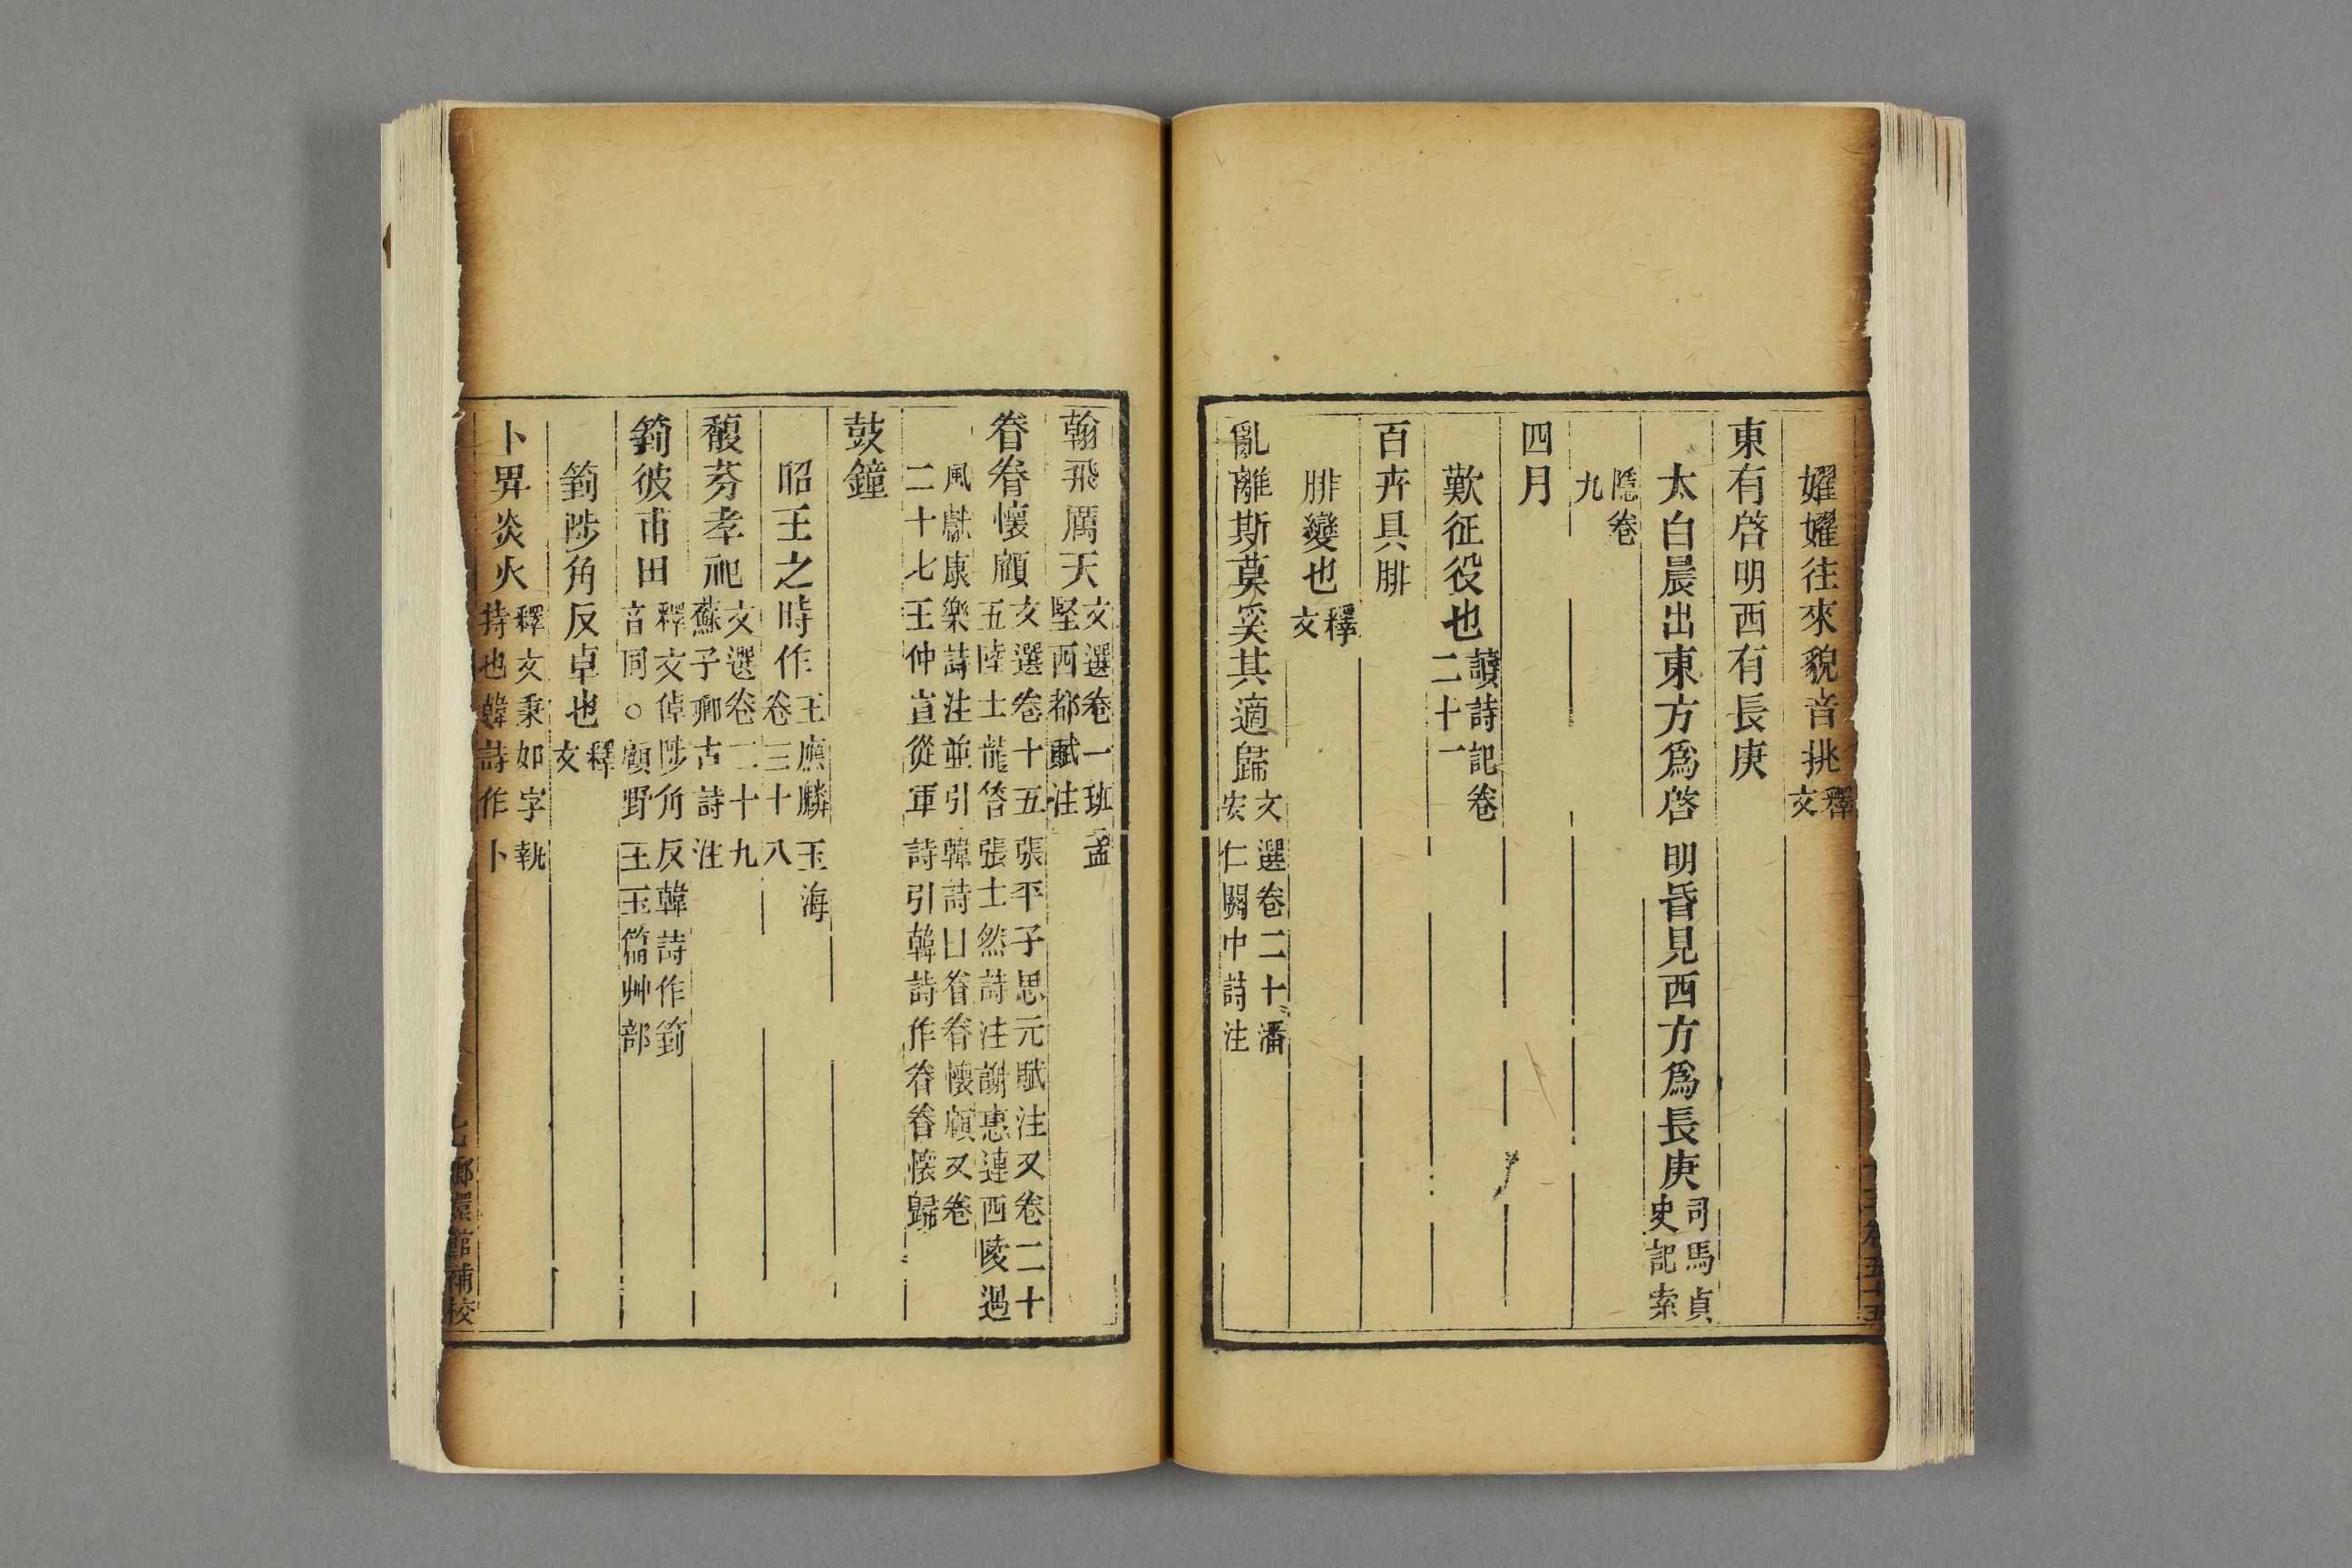 嬥嬥往來貌音挑釋文
東有啓明西有長庚
太白晨出東方爲啓明昏見西方爲長庚司馬貞史記索
隱卷九
四月
歎征役也讀詩記卷二十一
百卉具腓
腓變也釋文
亂離斯莫奚其適歸文選卷二十潘安仁關中詩注
翰飛厲天文選卷一班孟堅西都賦注
眷眷懷顧文選卷十五張平子思元賦注又卷二十五陸士龍答張士然詩注謝惠連西陵遇
風獻康樂詩注並引韓詩曰眷眷懷顧又卷二十七王仲宣從軍詩引韓詩作眷眷懷歸
鼓鐘
昭王之時作王應麟玉海卷三十八
馥芬孝祀文選卷二十九蘇子卿古詩注
箌彼甫田釋文倬陟角反韓詩作箌音同○顧野王玉篇艸部
箌陟角反卓也釋文
卜畀炎火釋文秉如字執持也韓詩作卜
嬛館補校